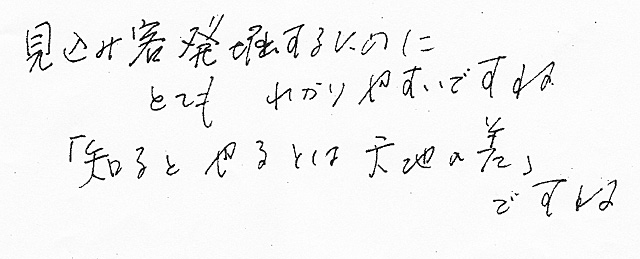 見込み客発掘するんのに
とても わかりやすいですね
「知るとやるとは天地の差」
ですね